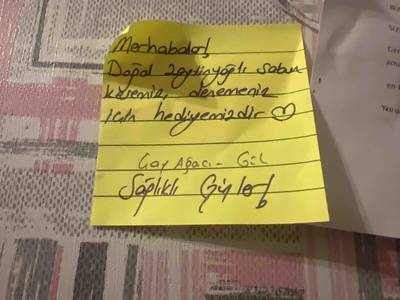 Merhabalar,
Doğal zeytinyağlı sabun
küremiz, denemeniz
için hediyemizdir ♡
Çay Ağacı - Gül
Sağlıklı Günler,